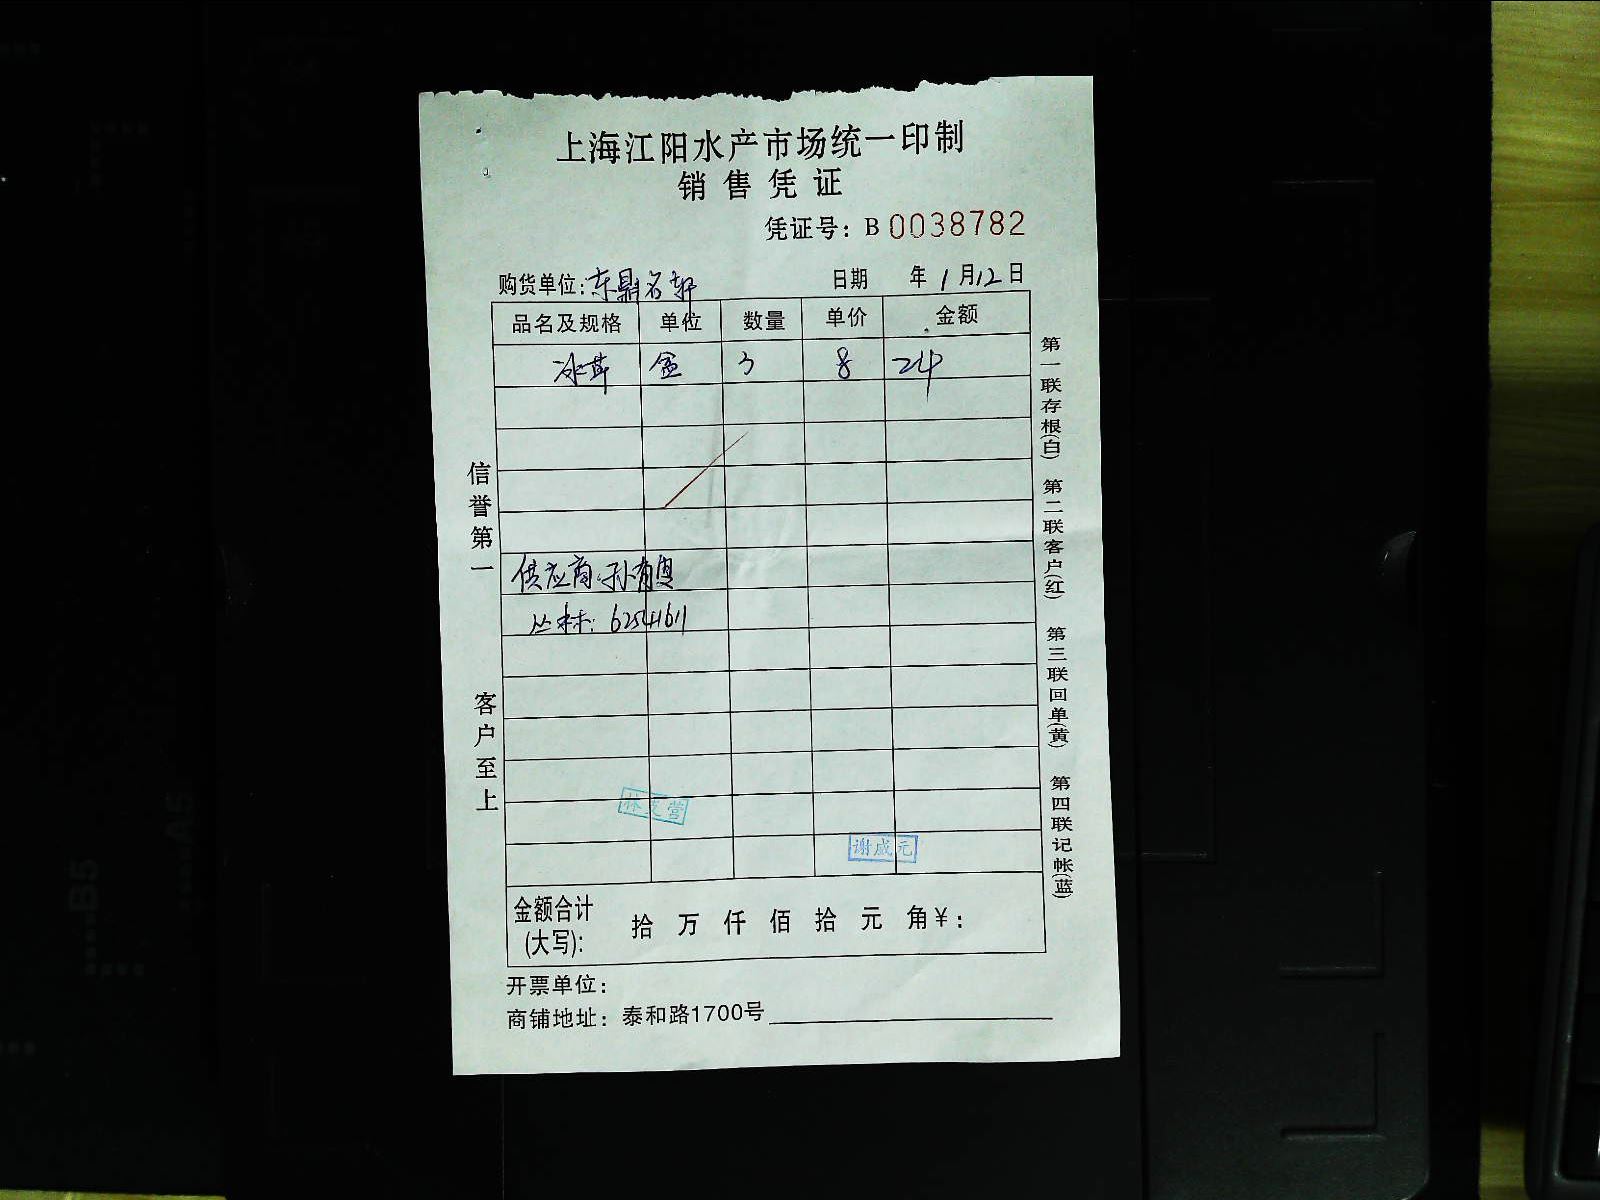 上海江阳水产市场统一印制
销售凭证
凭证号：B 0038782
购货单位：东鼎名轩 日期 年1月12日
品名及规格 单位 数量 单价 金额
盒 3 8 24
供应商：孙
丛林：62541611
谢成元
金额合计(大写)： 拾 万 仟 佰 拾 元 角￥：
开票单位：
商铺地址：泰和路1700号
信誉第一 客户至上
第一联存根(白) 第二联客户(红) 第三联回单(黄) 第四联记帐(蓝)
B5
A5